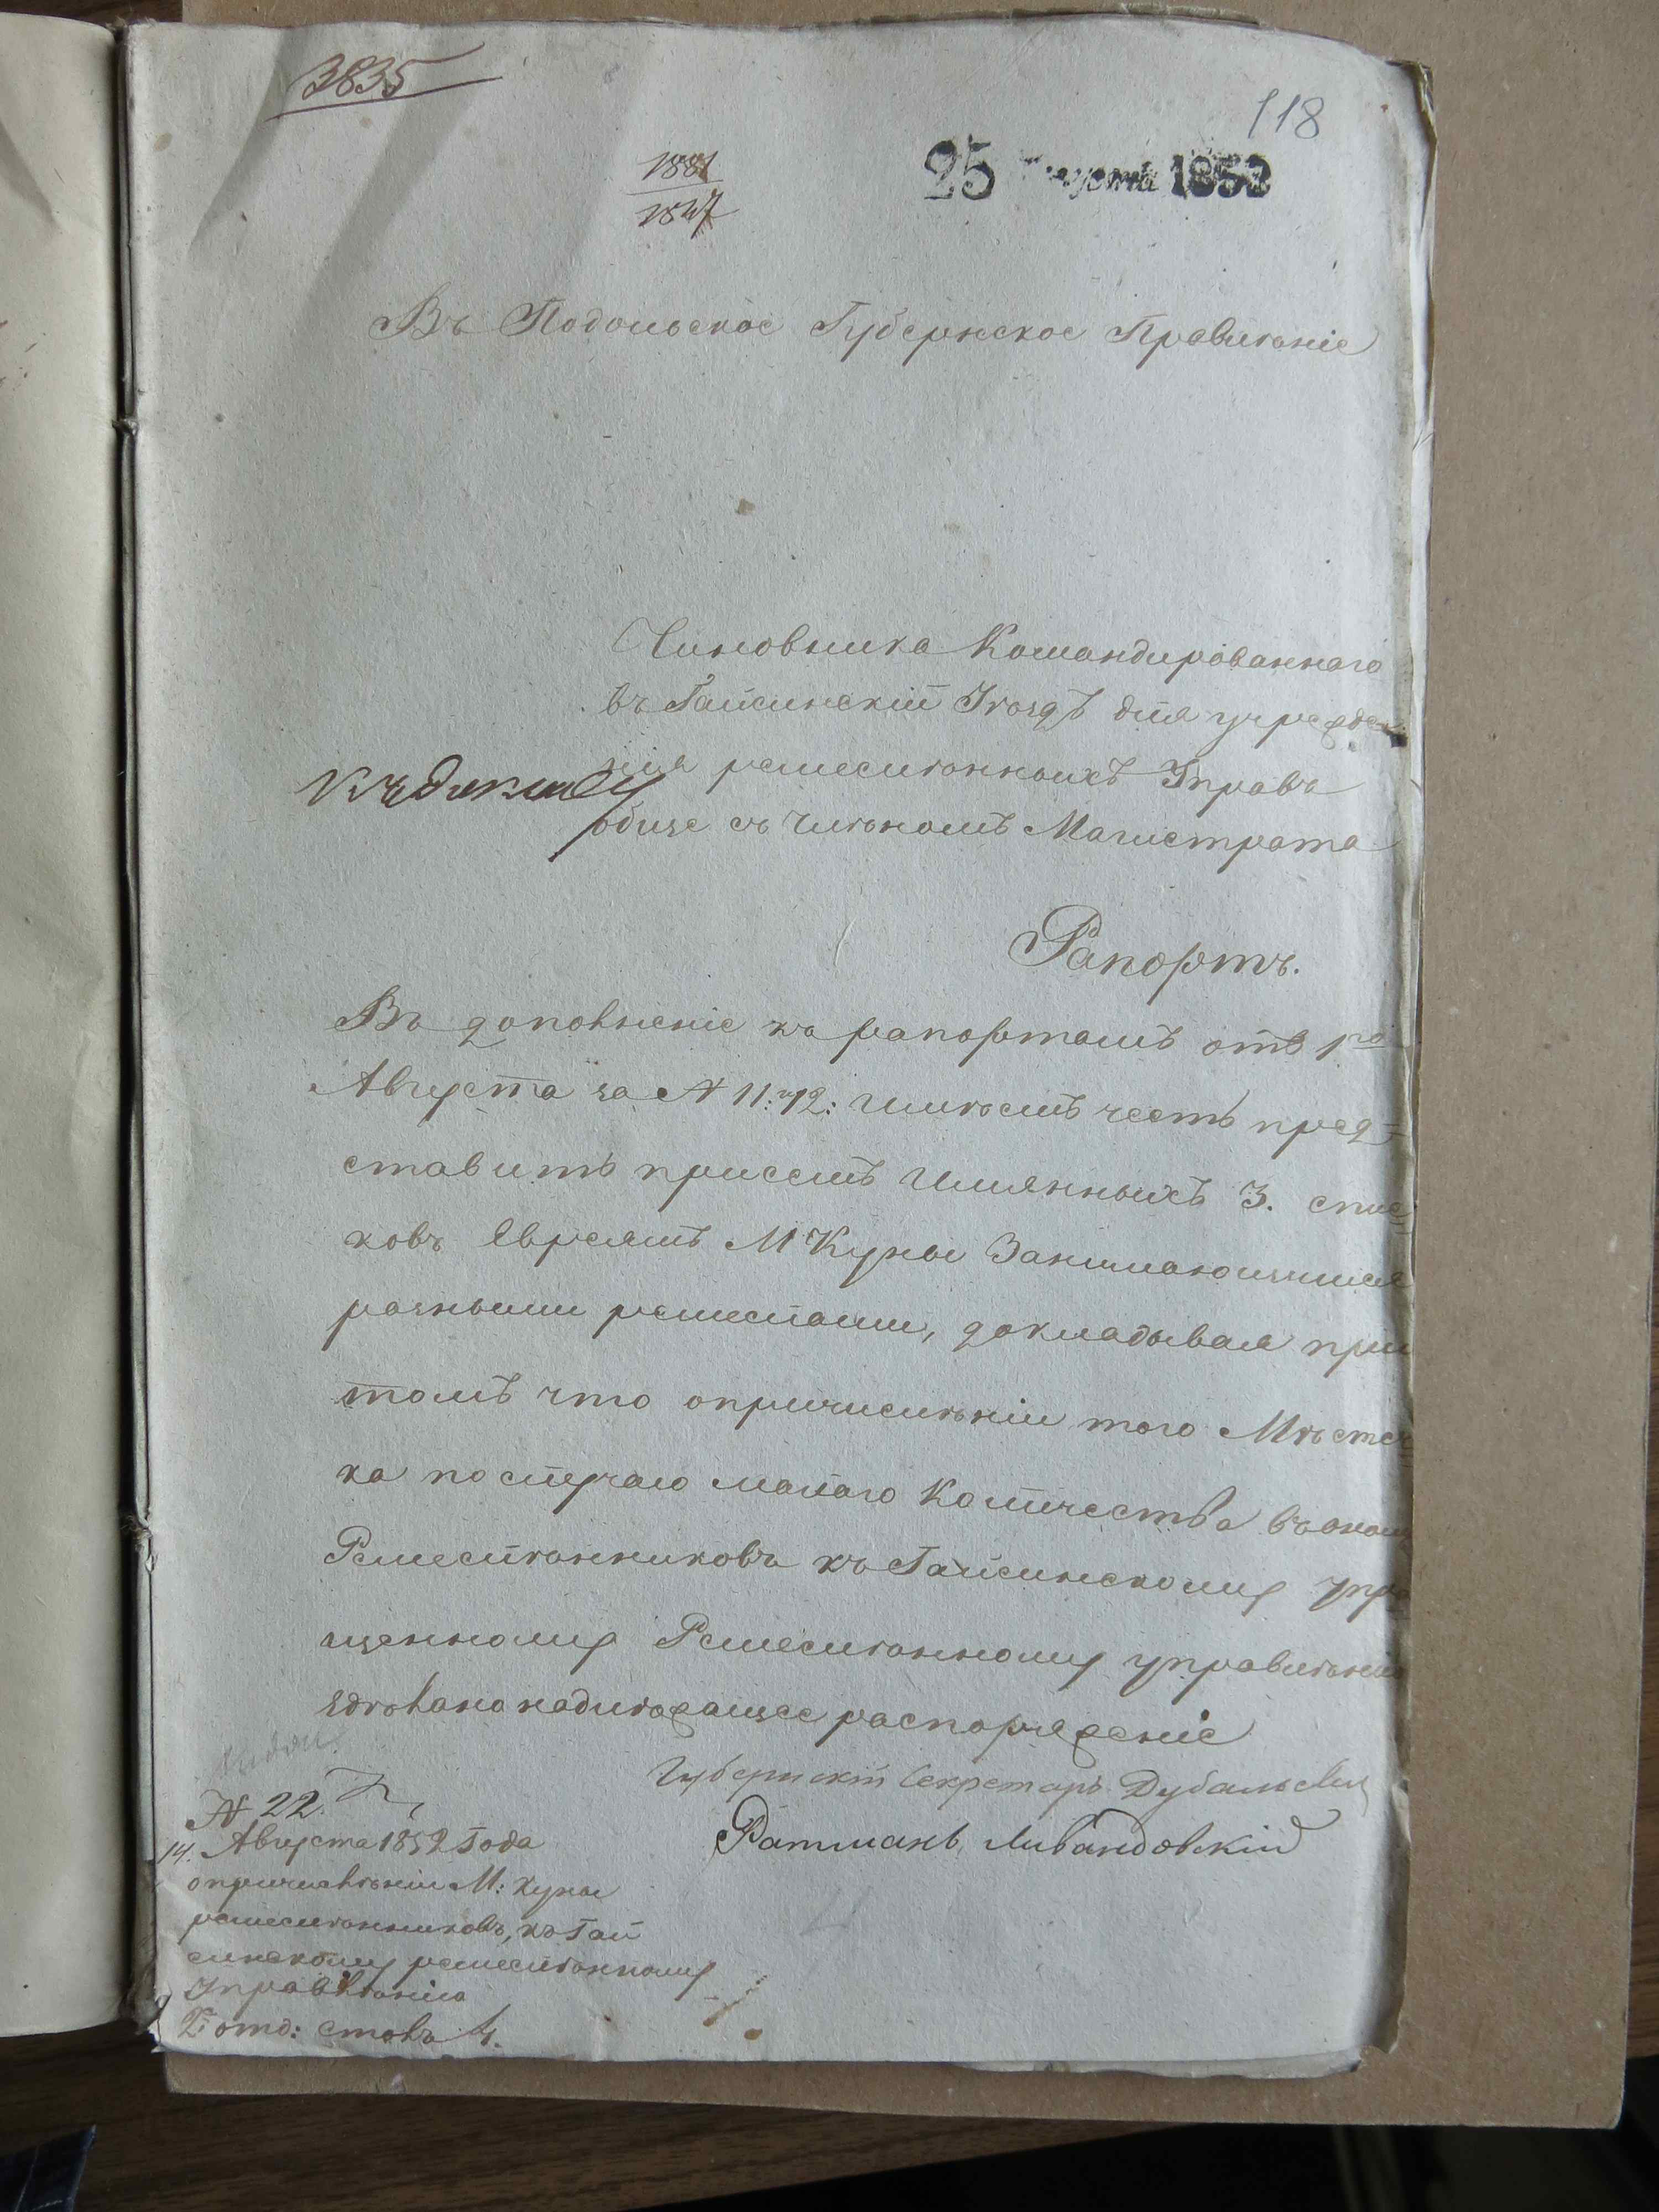 3835
118
1881
1847
25 Августа 1852
Въ Подольское Губернское Правленіе
Чиновника Командированнаго
въ Гайсинскій Уѣздъ для учрежде
нія ремесленныхъ Управъ
обще съ Членомъ Магистрата
Къ дѣлу
Рапортъ.
Въ доповненіе къ рапортамъ отъ 1го
Августа за № 11: 12: имѣемъ честь пред-
ставить присемъ Имянныхъ 3. спис
ковъ Евреямъ М Куны Занимающимся
разными ремеслами, докладывая при
томъ что опричисленіи того Мѣстеч
ка по случаю малаго Количества въ оном
Ремесленниковъ къ Гайсинскому упро
щенному Ремесленному управленію
здѣлано надлежащее распоряженіе
Губернскій Секретарь
Ратманъ Ливандовскій
№ 22.
14. Августа 1852 Года
опричисленіи М: Куны
ремесленниковъ, къ Гай
синскому ремесленному
Управленію
2 отд: столъ 4.